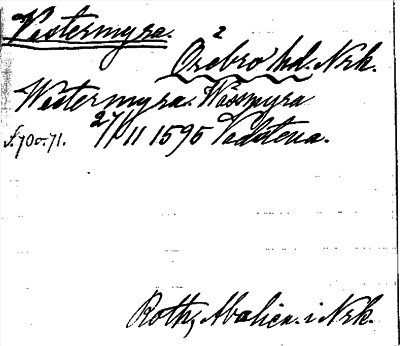 Vestermyra.
2
Örebro hd. Nrk.
Westermyra. Wässmyra
S. 70 o. 71. 27/11 1595 Vadstena.
Roth, Abalien. i Nrk.